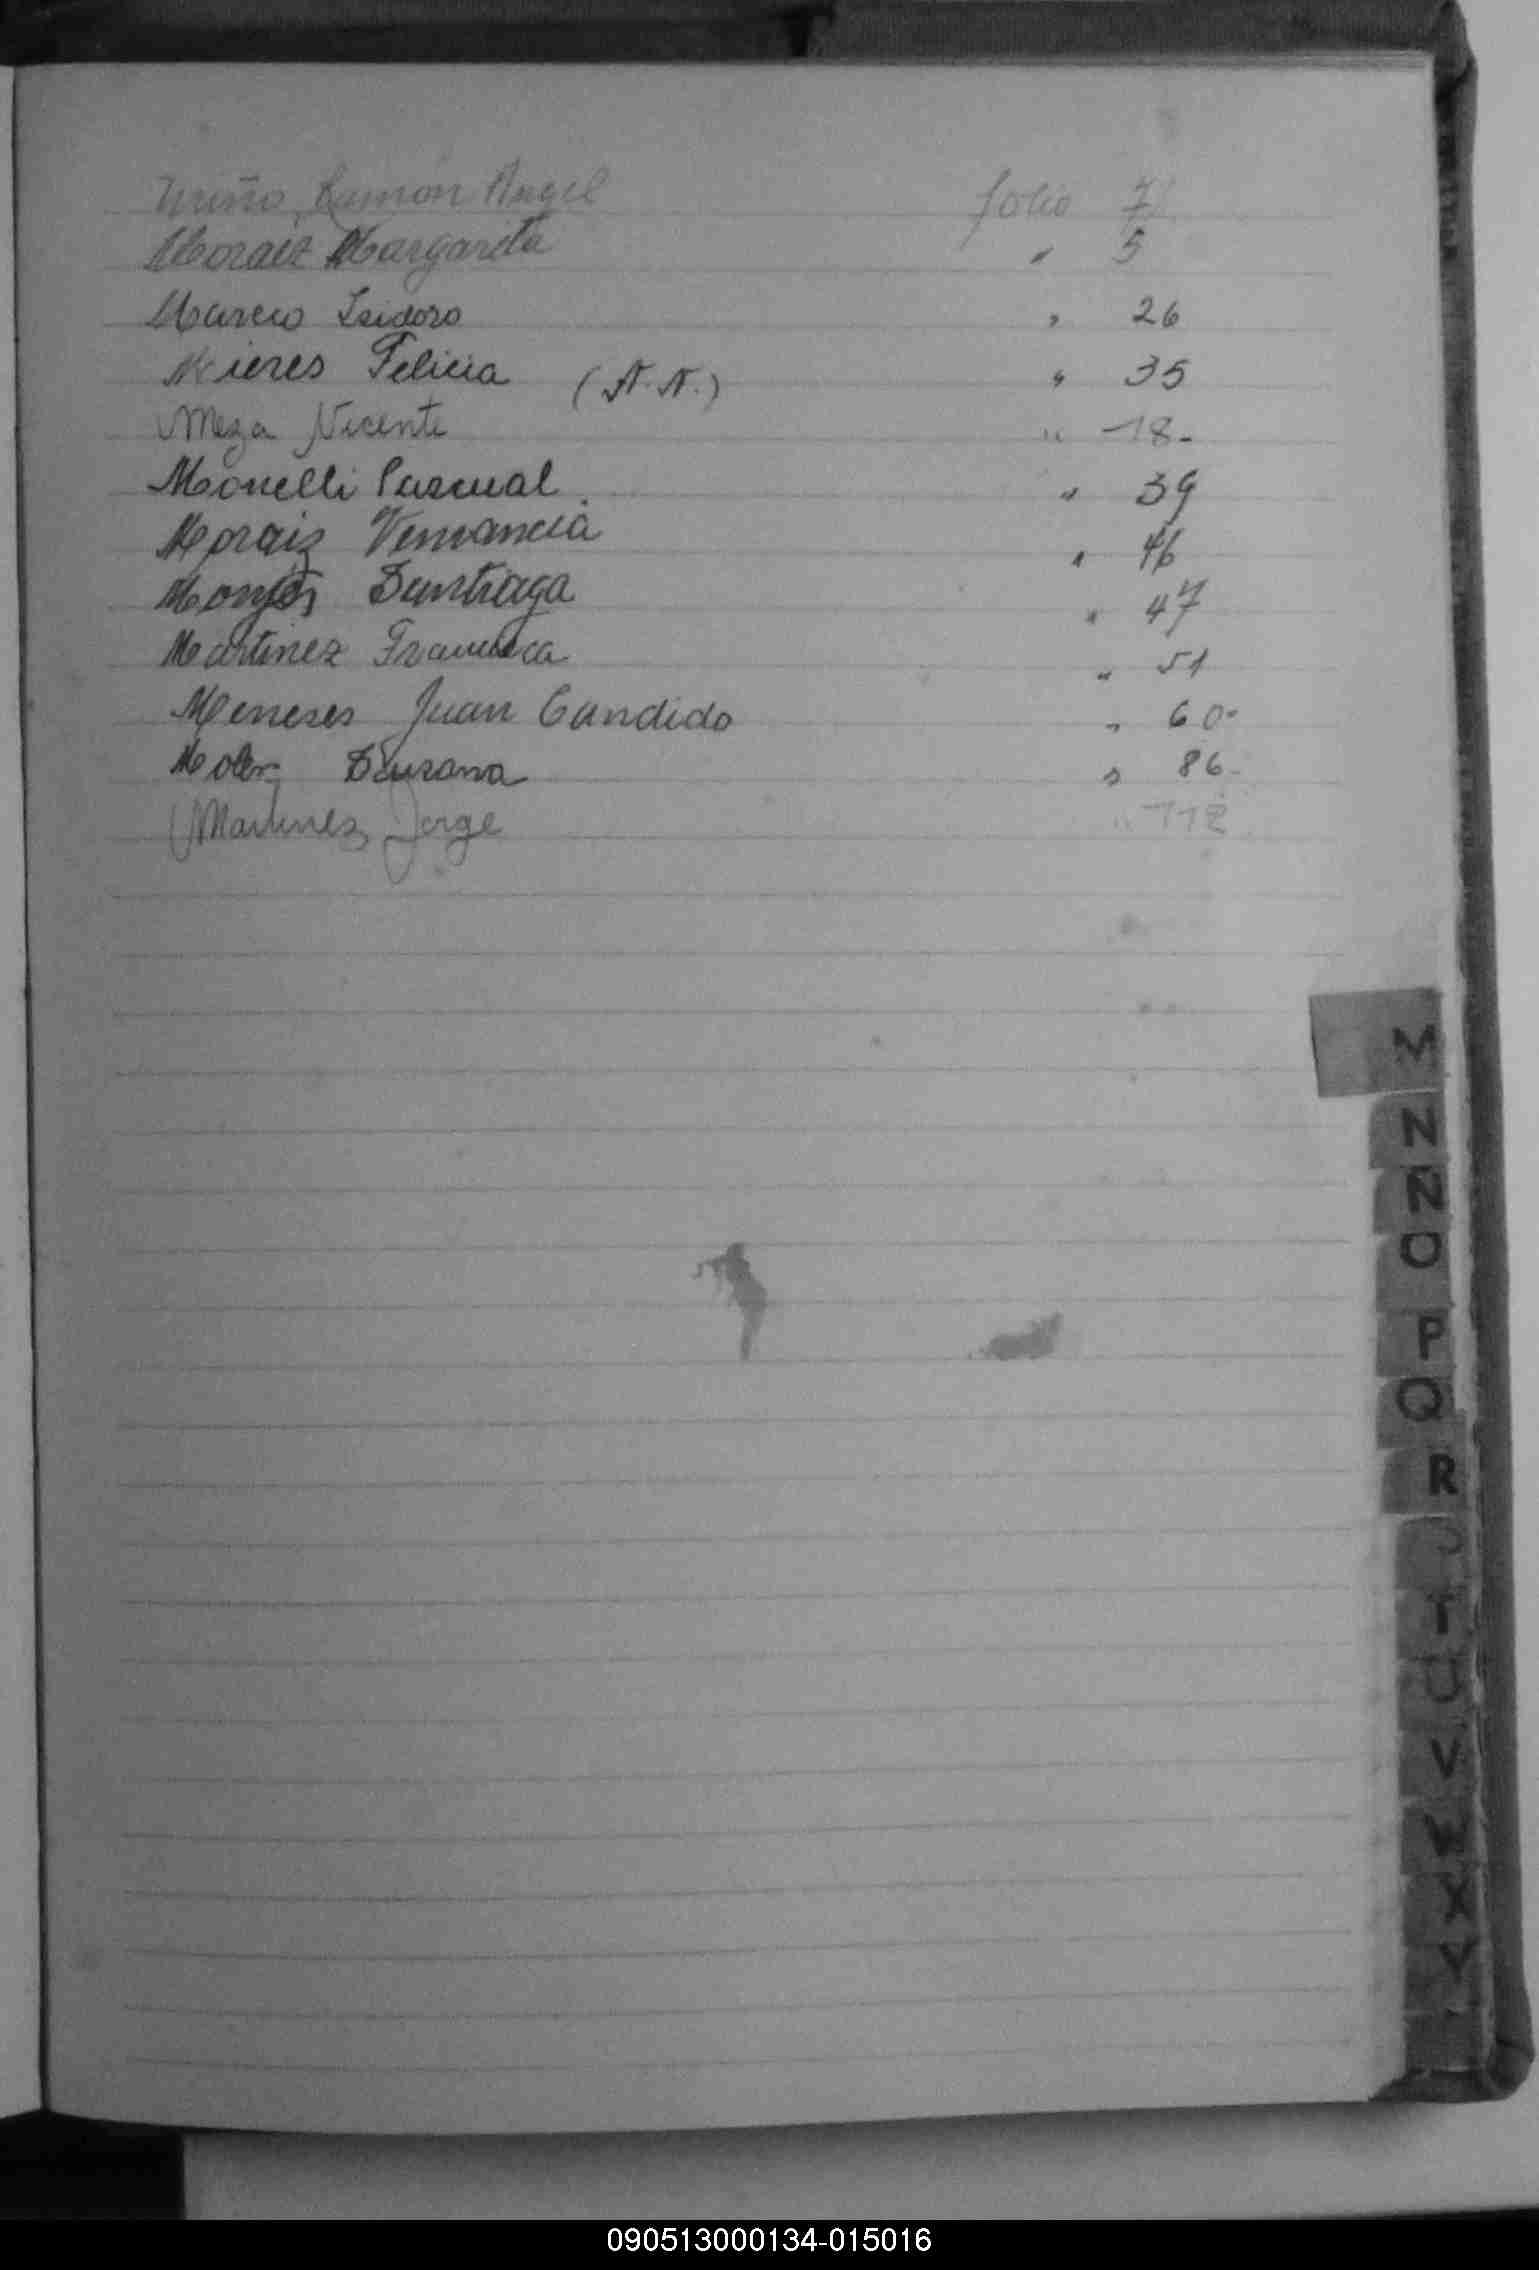 Ramón Angel folio 7
Moraiz Margarita " 5
Isidoro " 26
Mieres Felicia (N.N.) " 35
Meza Vicente " 18-
Monelli Pascual " 39
Moraiz Venancia " 46
Santiaga " 47
Martinez Francisca " 51
Meneses Juan Candido " 60-
" 86-
Martinez Jorge " 112
M
N
Ñ
O
P
Q
R
T
U
V
W
X
Y
090513000134-015016